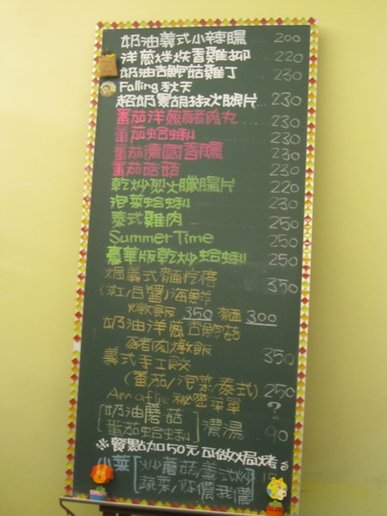 奶油義式小辣腸 200
洋蔥烘烤雞柳 220
奶油杏鮑菇雞丁 230
Falling 秋天
超奶黑胡椒火腿片 230
番茄洋蔥豬肉丸 230
番茄蛤蜊 230
番茄德國香腸 230
番茄菇菇 230
乾炒梨火臘腸片 220
泡菜蛤蜊 230
泰式雞肉 250
Summer Time 250
豪華版乾炒蛤蜊 250
焗義式麵疙瘩 350
(紅/白醬)海鮮
燉飯 350 麵 300
奶油洋蔥杏鮑菇
豬肉燉飯 350
義式手工餃
(番茄/泡菜/泰式) 250
Amalfi 秘密菜單 ?
奶油蘑菇
番茄蛤蜊 濃湯 90
※餐點加50元可做焗烤。
小菜 炒蘑菇/義式炒
蔬菜/你儂我儂